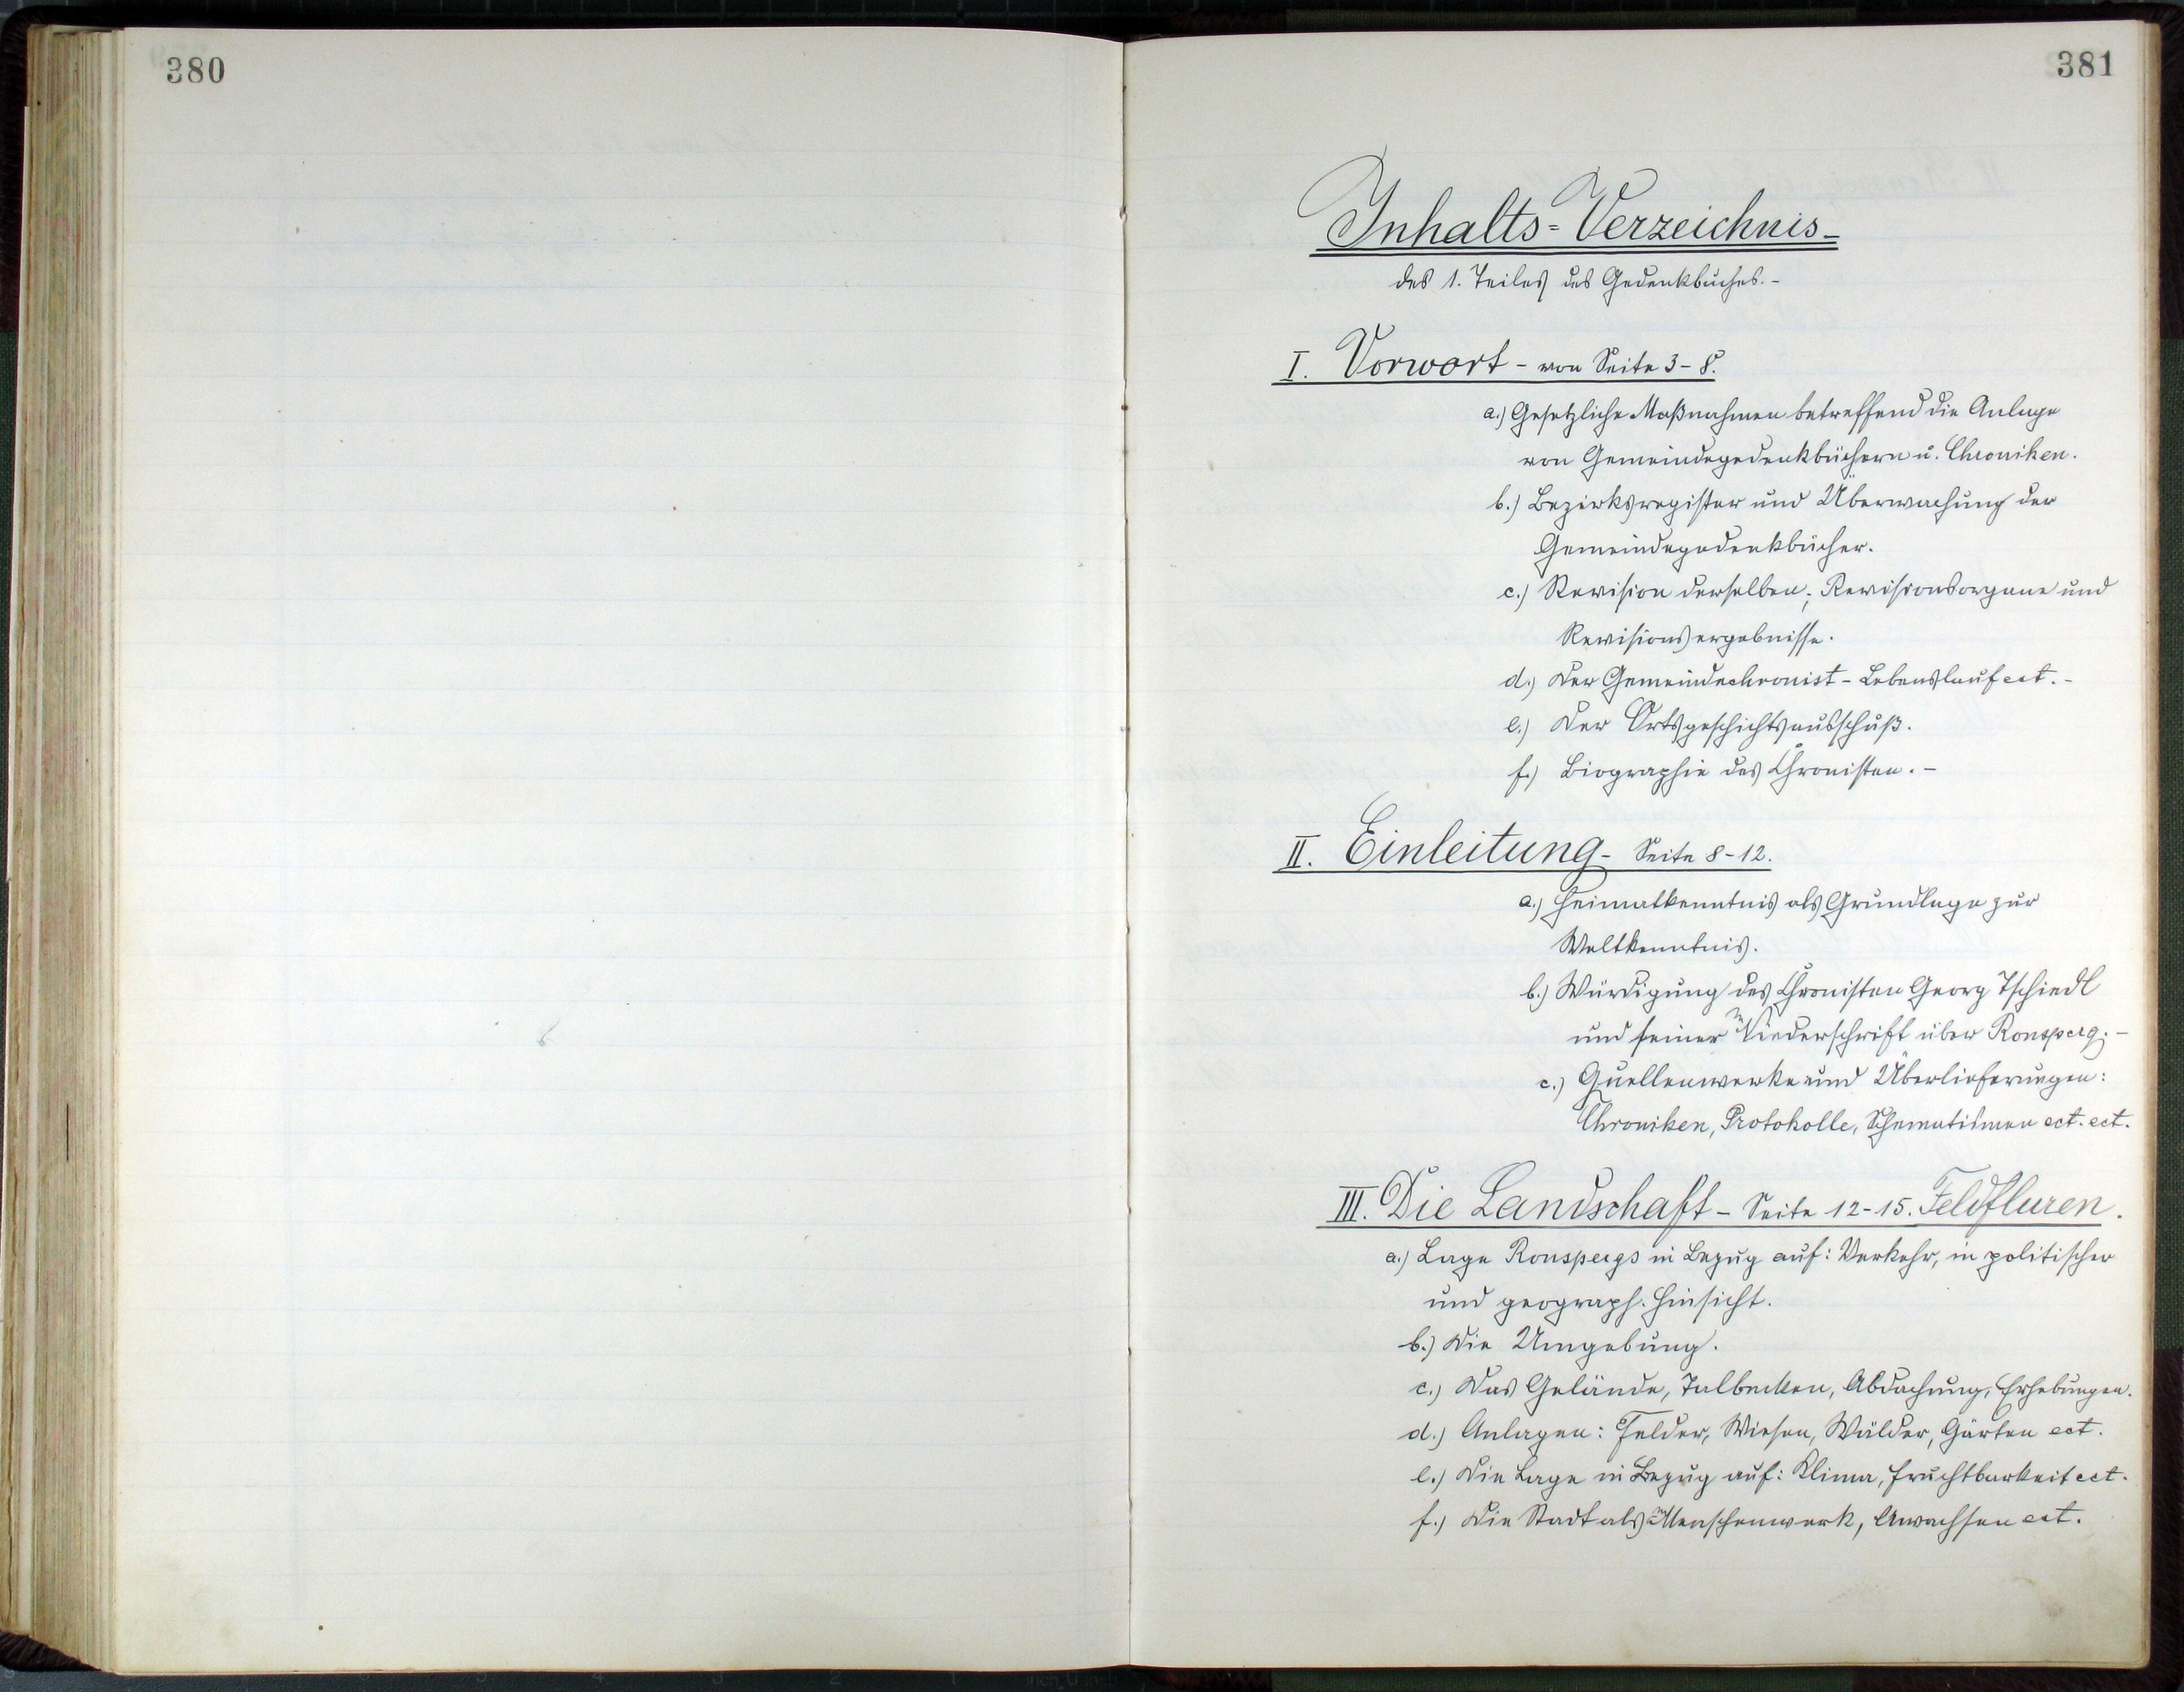 380
381
Inhalts=Verzeichnis-
des 1. Teiles des Gedenkbuches.-
I. Vorwort - von Seite 3-8.
a.) Gesetzliche Maßnahmen betreffend die Anlage
von Gemeindegedenkbüchern u. Chroniken.
b.) Bezirksregister und Überwachung der
Gemeindegedenkbücher.
c.) Revision derselben; Revisionsorgane und
Revisionsergebnisse.
d.) Der Gemeindechronist - Lebenslauf ect.-
e.) Der Ortsgeschichtsausschuß.
f.) Biographie des Chronisten.-
II. Einleitung - Seite 8-12.
a.) Heimatkenntnis als Grundlage zur
Weltkenntnis.
b.) Würdigung des Chronisten Georg Tschiedl
und seiner Niederschrift über Ronsperg.-
c.) Quellenwerke und Überlieferungen:
Chroniken, Protokolle, Schematismen ect. ect.
III. Die Landschaft - Seite 12-15. Feldfluren.
a.) Lage Ronspergs in Bezug auf: Verkehr, in politischer
und geograph. Hinsicht.
b.) Die Umgebung.
c.) Das Gelände, Talbecken, Abdachung, Erhebungen.
d.) Anlagen: Felder, Wiesen, Wälder, Gärten ect.
e.) Die Lage in Bezug auf: Klima, Fruchtbarkeit ect.
f.) Die Stadt als Menschenwerk, Anwachsen ect.